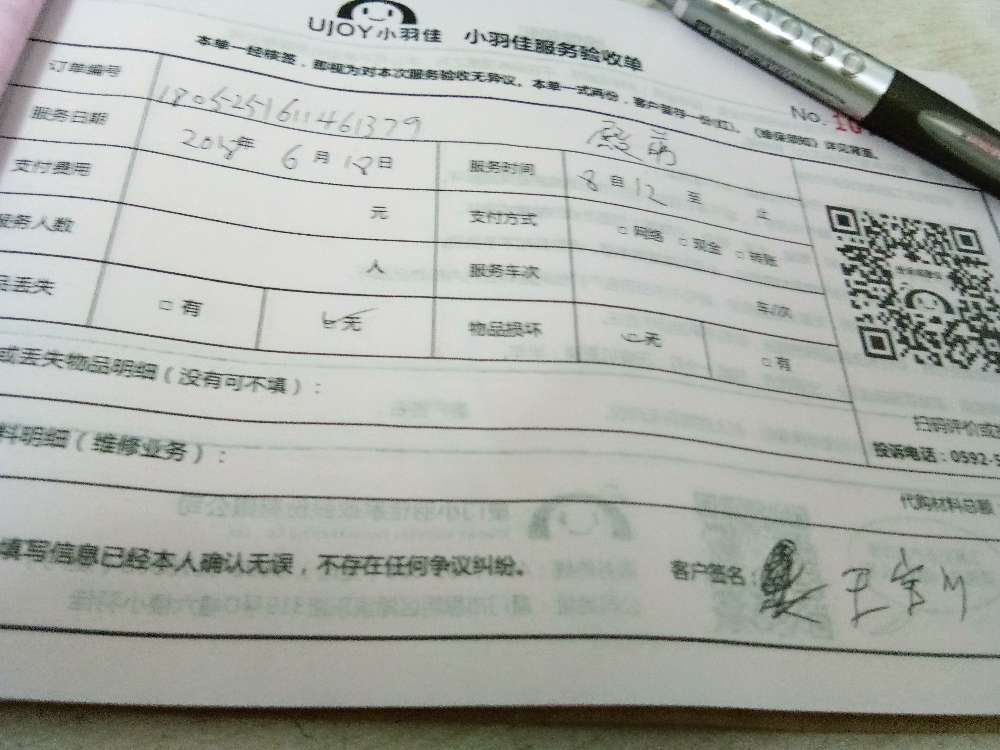 UJOY小羽佳 小羽佳服务验收单
本单一经核签，即视为对本次服务验收无异议。本单一式两份，客户留存一份(红)，《维保须知》详见背面。
No. 10
订单编号 180525161146137​9
服务日期 2018年 6月 18日 服务时间 8自12至 止
支付费用 元 支付方式 □网络 □现金 □转账
服务人数 人 服务车次 车/次
品丢失 □有 无 物品损坏 无 □有
或丢失物品明细（没有可不填）：
扫码评价或
料明细（维修业务）：
投诉电话：0592-5
代购材料总额
填写信息已经本人确认无误，不存在任何争议纠纷。 客户签名：